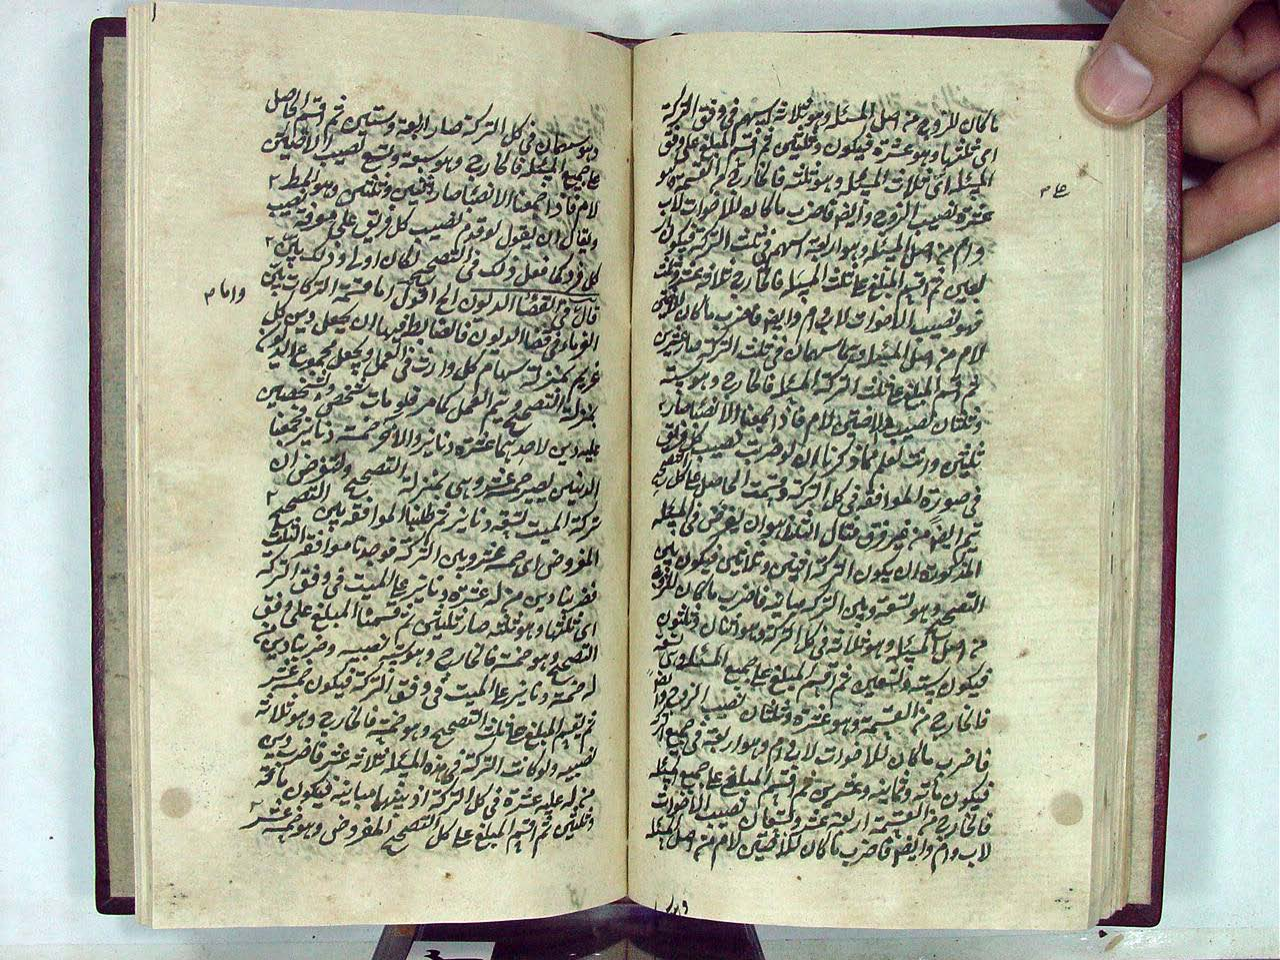 ما كان للزوج من اصل المسئلة وهو ثلاثة اسهم فى وفق التركة
اى ثلثها وهو عشرة فيكون وثلثين ثم اقسم المبلغ على وفق
المسئلة اى ثلاث المسئلة وهو ثلثة فالخارج من القسمة وهو
عشرة نصيب الزوج وايضا فاضرب ما كان للاخوات لاب
وام من اصل المسئلة وهو اربعة اسهم فى ثلث التركة فيكون
اربعين ثم اقسم المبلغ على ثلث المسئلة فالخارج ثلاثة عشر وثلث
فهو نصيب الاخوات لاب وام وايضا فاضرب ما كان للاختين
لام من اصل المسئلة وهما سهمان فى ثلث التركة صار عشرين
ثم اقسم المبلغ على ثلث المسئلة فالخارج وهو ستة
وثلثان نصيب الاختين لام فاذا جمعنا الانصباء صار
ثلثين وانت تعلم مما ذكرنا ان لو ضربت نصيب كل فريق
فى صورة الموافقة فى كل التركة وقسمت الحاصل على كل التصحيح
تم ايضا من غير فرق مثال التباين هو ان نفرض فى المسئلة
المذكورة ان يكون التركة اثنين وثلاثين فيكون بين
التصحيح وهو تسعة وبين التركة مباينة فاضرب ما كان للزوج
من اصل المسئلة وهو ثلاثة فى كل التركة وهو اثنان وثلثون
فيكون ستة وتسعين ثم اقسم المبلغ على جميع المسئلة وهى تسعة
فالخارج من القسمة وهو عشرة وثلثان نصيب الزوج وايضا
فاضرب ما كان للاخوات لاب وام وهو اربعة فى جميع التركة
فيكون مائة وثمانية وعشرين ثم اقسم المبلغ على جميع المسئلة
فالخارج من القسمة اربعة عشر وتسعان نصيب الاخوات
لاب وام وايضا فاضرب ما كان للاختين لام من اصل المسئلة
وهو سهمان فى كل التركة صار اربعة وستين ثم اقسم الحاصل
على جميع المسئلة فالخارج وهو سبعة وتسع نصيب الاختين
لام فاذا جمعنا الانصباء صار اثنين وثلثين وهو المط
ويقال ان يقول لو قدم نصيب كل فريق على معرفة نصيب
كل فرد كما فعل ذلك فى التصحيح لكان اولى وذلك بين
قال فى القضاء الديون الخ اقول اما قسمة التركات بين
واما
الغرماء فى قضاء الديون فالضابط فيها ان يجعل دين كل
غريم بمنزلة سهام كل وارث فى العمل ويجعل مجموع الديون
بمنزلة التصحيح ويتم العمل كما مر فلو مات شخص ولشخصين
عليه دين لاحدهما عشرة دنانير وللآخر خمسة دنانير فجمعنا
الدينين يصير خمسة عشر وهى بمنزلة التصحيح ولنفرض ان
تركة الميت تسعة دنانير ثم طلبنا الموافقة بين التصحيح
المفروض اى خمسة عشر وبين التركة فوجدنا موافقة بالثلث
فضربنا دين من له عشرة دنانير على الميت فى وفق التركة
اى ثلثها وهو ثلثة صار ثلثين ثم قسمنا المبلغ على وفق
التصحيح وهو خمسة فالخارج وهو ستة نصيبه وضربنا دين من
له خمسة دنانير على الميت فى وفق التركة فيكون خمسة عشر
ثم نقسم المبلغ على ثلث التصحيح وهو خمسة فالخارج وهو ثلاثة
نصيبه ولو كانت التركة فى هذه المسئلة ثلاثة عشر فاضرب دين
من له عليه عشرة فى كل التركة اذ بينهما مباينة فيكون مائة
وثلثين ثم اقسم المبلغ على كل التصحيح المفروض وهو خمسة عشر